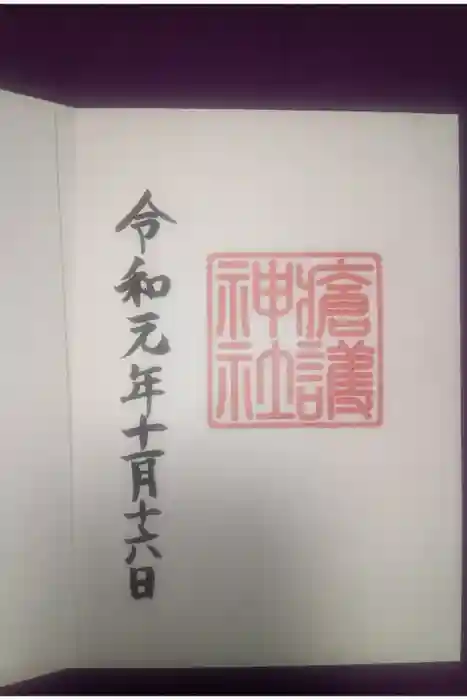 瘡護
神社
令和元年十一月十六日